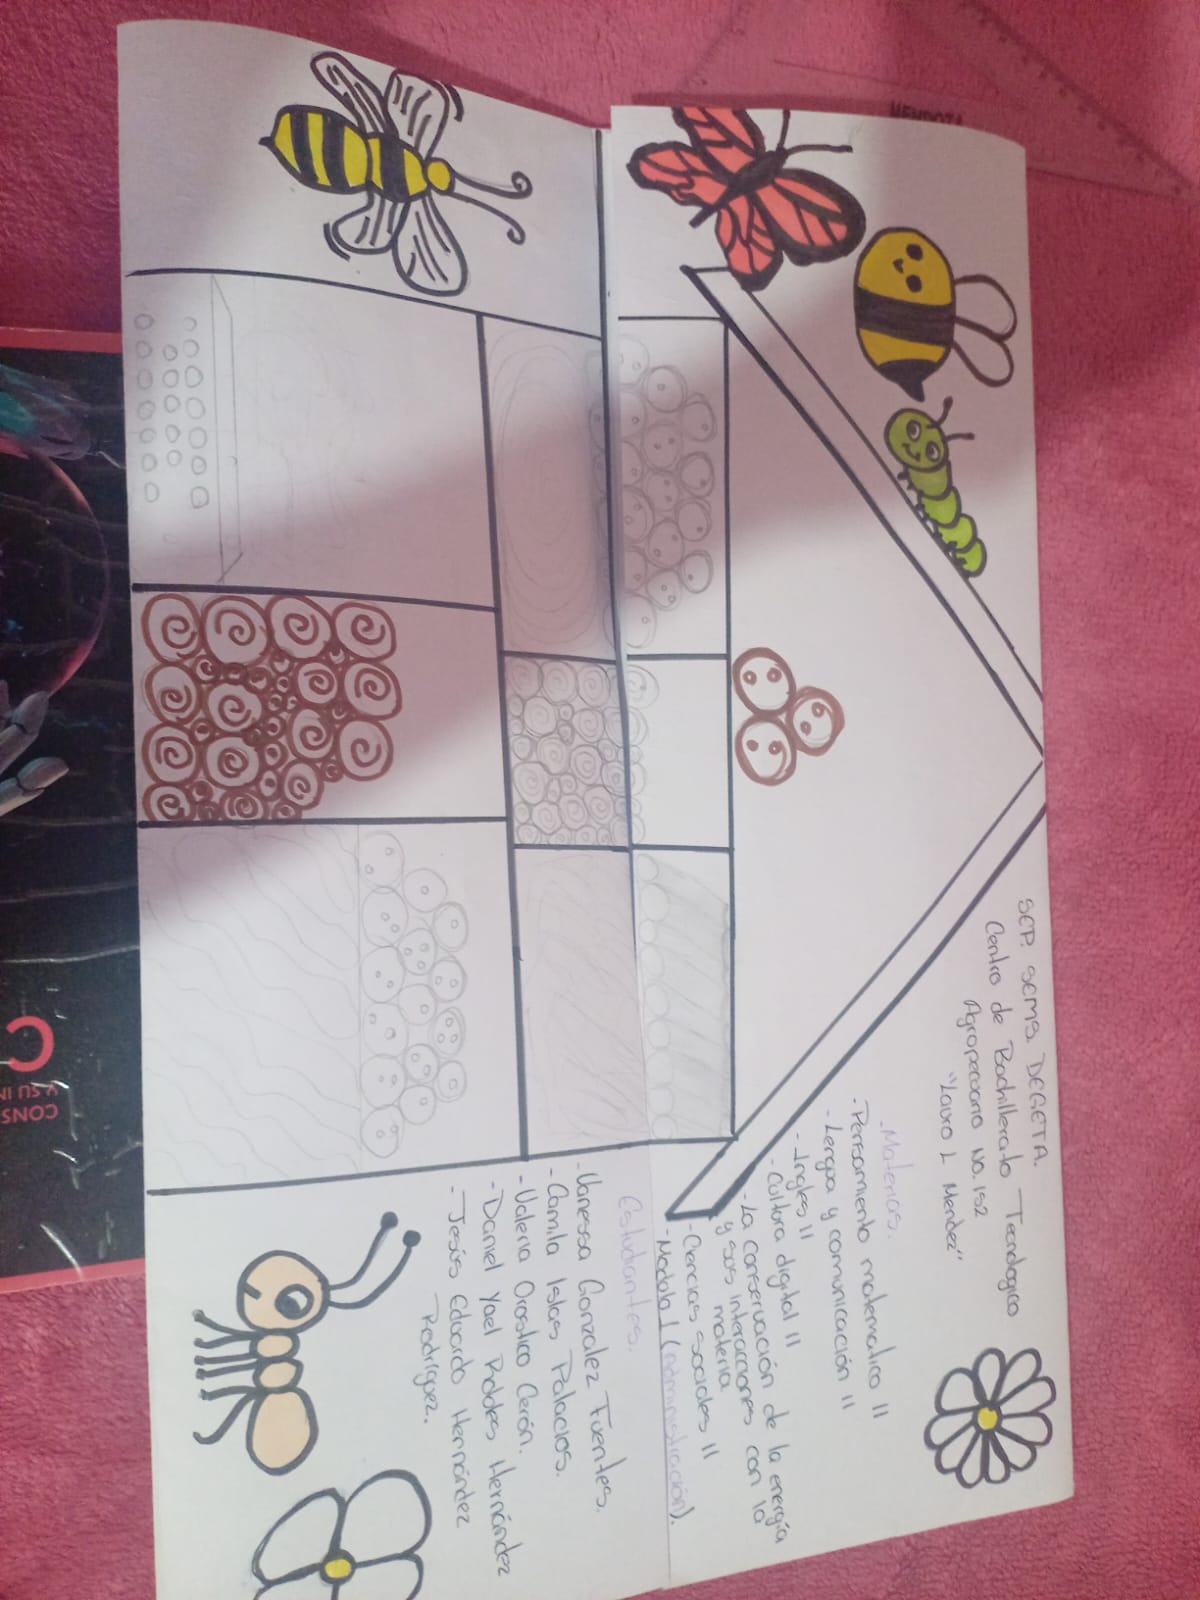 SEP. SEMS. DEGETA.
Centro de Bachillerato Tecnologico
Agropecuario No. 152
"Lauro L Mendez"
-Materias.
-Pensamiento matematico II
-Lengua y comunicación II
-Ingles II
-Cultura digital II
-La conservación de la energía
y sus interacciones con la
materia
-Ciencias sociales II
-Modulo I (administración).
Estudiantes.
-Vanessa Gonzalez Fuentes.
-Camila Islas Palacios.
-Valeria Orostico Cerón.
-Daniel Yael Robles Hernández
-Jesús Eduardo Hernández
Rodríguez.
MENDOZA
C
CONS
Y SU IN